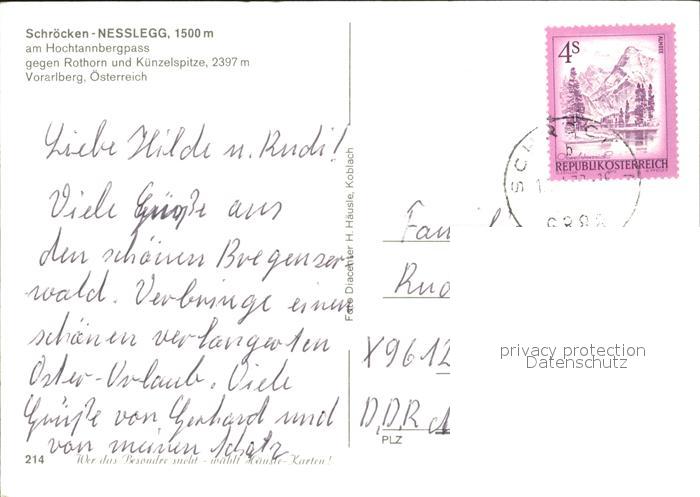 Schröcken - NESSLEGG, 1500 m
am Hochtannbergpass
gegen Rothorn und Künzelspitze, 2397 m
Vorarlberg, Österreich
Liebe Hilde u. Rudi!
Viele Grüße aus
den schönen Bregenzer
wald. Verbringe einen
schönen verlängerten
Oster-Urlaub. Viele
Grüße von Gerhard und
von meinen Schatz
214 Wer das Besondre sucht - wählt Häusle-Karten!
Foto Diacenter H. Häusle, Koblach
4S
ALMSEE
REPUBLIK ÖSTERREICH
SCH
6888
Fam
Rud
X9612
D.D.R
PLZ
privacy protection
Datenschutz